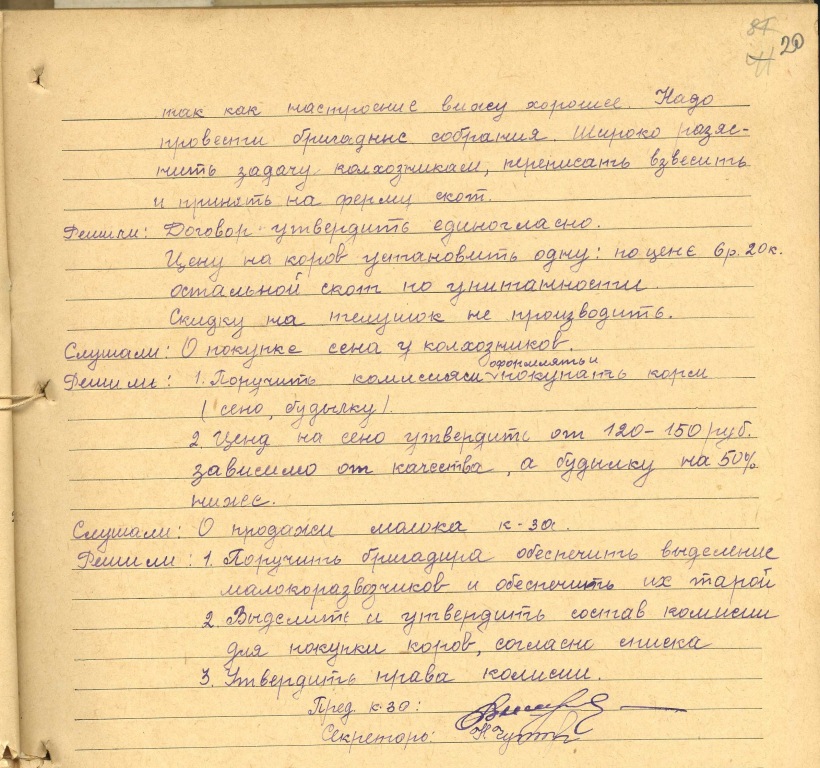 20
так как настроение вижу хорошее. Надо
провести бригадные собрания. Широко разяс-
нить задачу колхозникам, переписать взвесить
и принять на ферму скот.
Решили: Договор утвердить единогласно.
Цену на коров установить одну: по цене 6р. 20к.
остальной скот по упитанности.
Скидку на телушок не производить.
Слушали: О покупке сена у колхозников.
оформлять и
Решили: 1. Поручить комисиям покупать корм
(сено, будылку).
2. Цену на сено утвердить от 120-150 руб.
зависимо от качества, а будылку на 50%
ниже.
Слушали: О продажи молока к-за.
Решили: 1. Поручить бригадира обеспечить выделение
малокоразвозчиков и обеспечить их тарой
2. Выделить и утвердить состав комисии
для покупки коров, согласно списка
3. Утвердить права комисии.
Пред. к-за:
Секретарь: